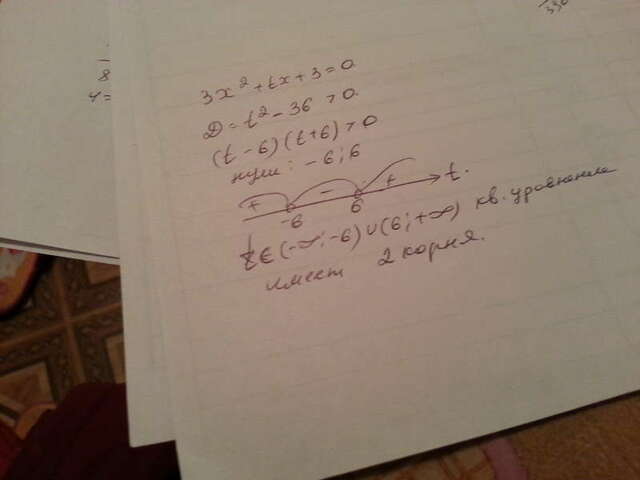 8
4=
330
3x²+tx+3=0
D=t²-36>0
(t-6)(t+6)>0
нули: -6; 6
+ - + t.
-6 6
t∈(-∞;-6)∪(6;+∞) кв. уравнение
имеет 2 корня.